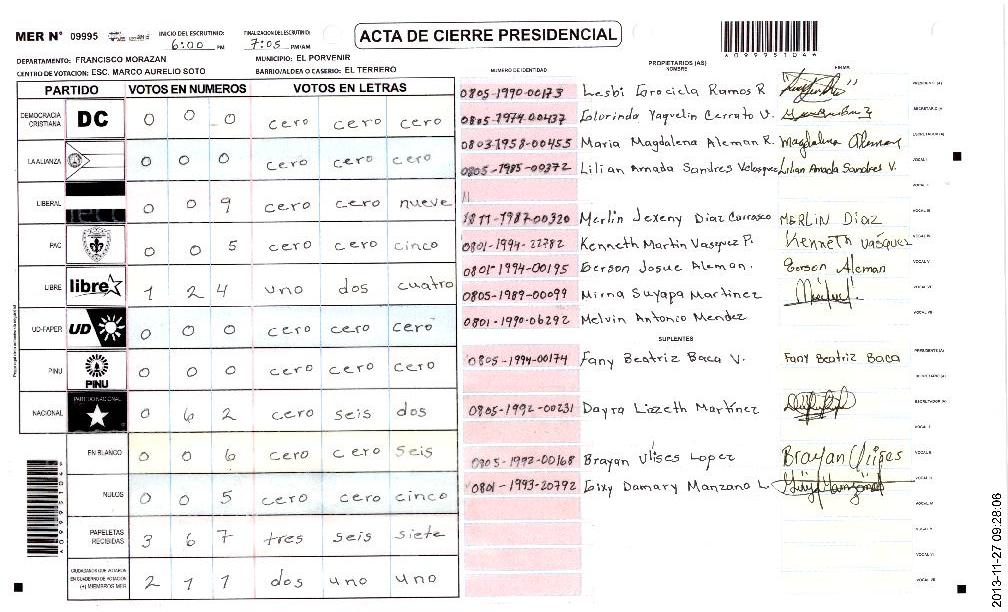 MER N° 09995 INICIO DEL ESCRUTINIO: 6:00 PM FINALIZACION DEL ESCRUTINIO: 7:05 PM/AM ACTA DE CIERRE PRESIDENCIAL
DEPARTAMENTO: FRANCISCO MORAZAN MUNICIPIO: EL PORVENIR
CENTRO DE VOTACION: ESC. MARCO AURELIO SOTO BARRIO/ALDEA O CASERIO: EL TERRERO
PARTIDO VOTOS EN NUMEROS VOTOS EN LETRAS
DEMOCRACIA CRISTIANA DC 0 0 0 cero cero cero
LA ALIANZA 0 0 0 cero cero cero
LIBERAL 0 0 9 cero cero nueve
PAC 0 0 5 cero cero cinco
LIBRE libre 1 2 4 uno dos cuatro
UD-FAPER UD 0 0 0 cero cero cero
PINU PINU 0 0 0 cero cero cero
NACIONAL PARTIDO NACIONAL 0 6 2 cero seis dos
EN BLANCO 0 0 6 cero cero seis
NULOS 0 0 5 cero cero cinco
PAPELETAS RECIBIDAS 3 6 7 tres seis siete
CIUDADANOS QUE VOTARON EN CUADERNO DE VOTACION (+) MIEMBROS MER 2 1 1 dos uno uno
NUMERO DE IDENTIDAD PROPIETARIOS (AS) NOMBRE FIRMA
0805-1990-00173 Lesbi Ramos R PRESIDENTE (A)
0805-1974-00437 Yaquelin Cerrato V. SECRETARIO (A)
0803-1958-00455 Maria Magdalena Aleman R. Magdalena Aleman ESCRUTADOR (A)
0805-1985-00372 Lilian Amada Sandres Velasquez Lilian Amada Sandres V. VOCAL I
VOCAL II
-1987-00320 Merlin Jexeny Diaz Carrasco MERLIN Diaz VOCAL III
0801-1994-22782 Kenneth Martin Vasquez P. Kenneth Vasquez VOCAL IV
0801-1994-00195 Gerson Josue Aleman. Gerson Aleman VOCAL V
0805-1989-00099 Mirna Suyapa Martinez VOCAL VI
0801-1990-06292 Melvin Antonio Mendez VOCAL VII
SUPLENTES
0805-1994-00174 Fany Beatriz Baca V. Fany Beatriz Baca PRESIDENTE (A)
SECRETARIO (A)
0805-1992-00231 Dayra Lizzeth Martínez ESCRUTADOR (A)
VOCAL I
0805-1992-00168 Brayan Ulises Lopez Brayan Ulises VOCAL II
0801-1993-20792 Damary Manzano L. VOCAL III
VOCAL IV
VOCAL V
VOCAL VI
VOCAL VII
2013-11-27 09:28:06